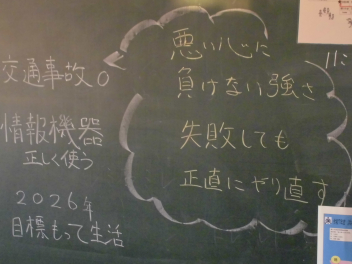 悪い心に
負けない強さ
失敗しても
正直にやり直す
交通事故0
情報機器
正しく使う
2026年
目標もって生活